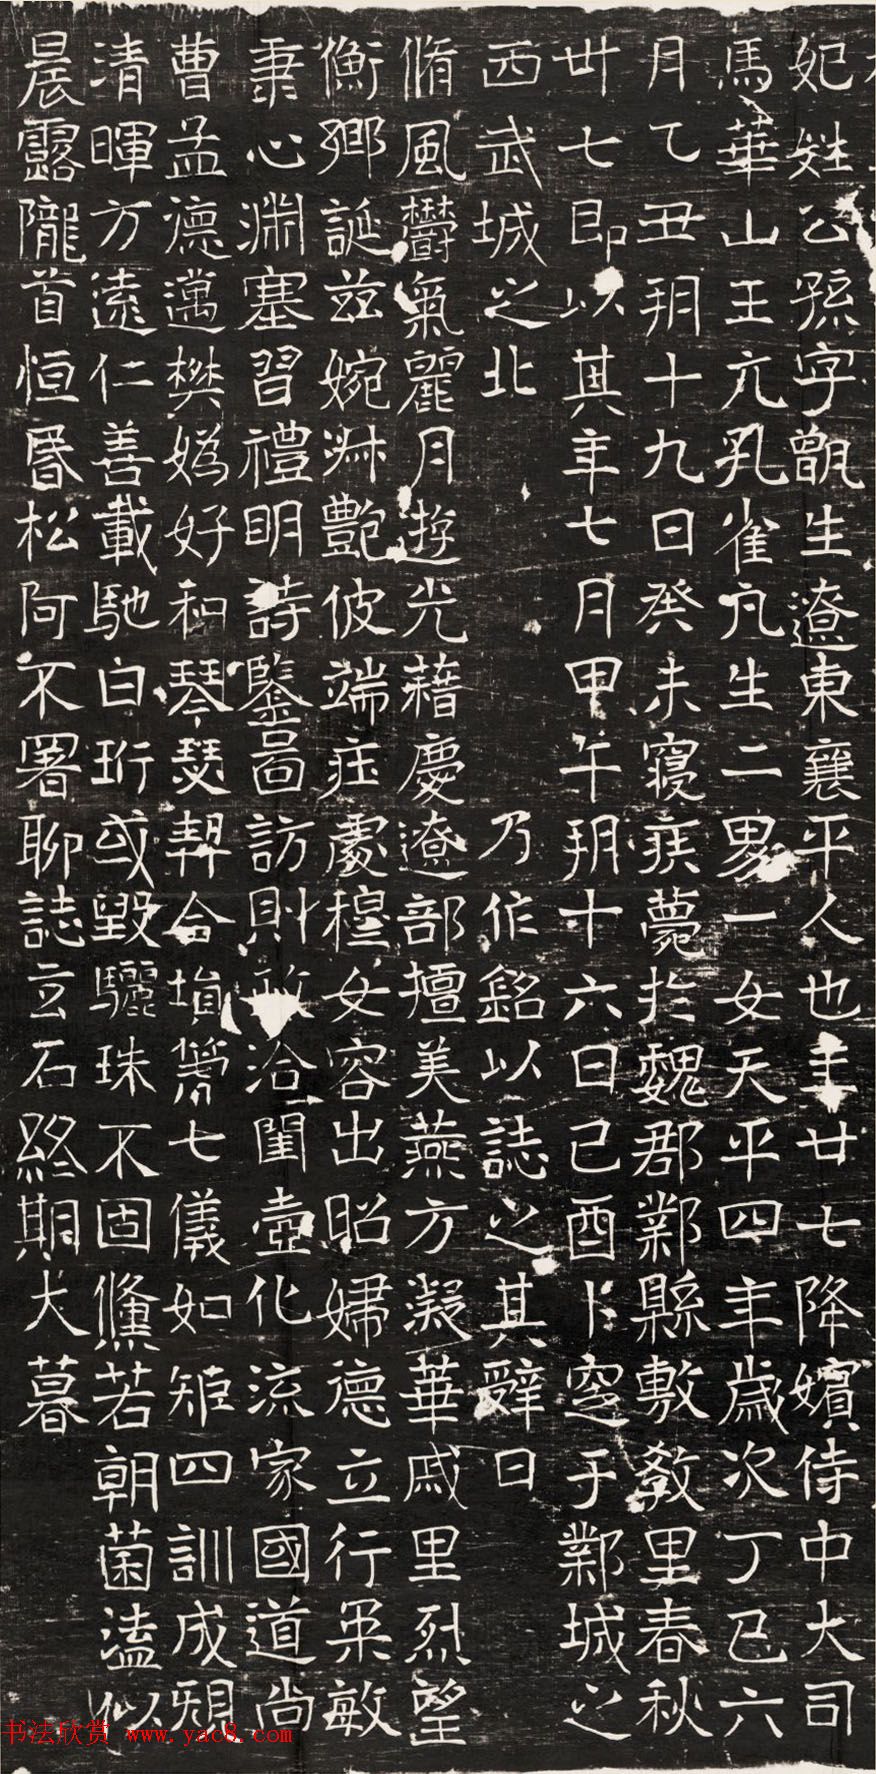 妃姓公孫字甑生遼東襄平人也年廿七降嬪侍中大司
馬華山王亢孔雀凡生二男一女天平四年歲次丁巳六
月乙丑朔十九日癸未寢疾薨於魏郡鄴縣敷教里春秋
卅七即以其年七月甲午朔十六日己酉卜窆于鄴城之
西武城之北 乃作銘以誌之其辭曰
脩風鬱氣麗月遊光藉慶遼部擅美燕方凝華戚里烈望
衡鄉誕茲婉淑艷彼端庄處穆女容出昭婦德立行柔敏
秉心淵塞習禮明詩鑒啚訪則敬洽閨壼化流家國道尚
曹孟德邁樊嬀好和琴瑟契合塤篪七儀如矩四訓成規
清暉方遠仁善載馳白珩或毀驪珠不固儵若朝菌溘似
晨露隴首恒昏松阿不署聊誌玄石終期大暮
书法欣赏 www.yac8.com